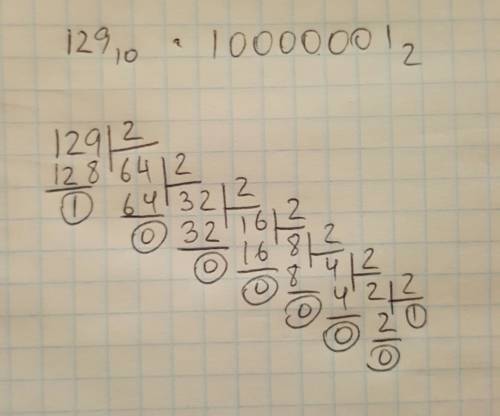 129₁₀ = 10000001₂
129 2
128 64 2
1 64 32 2
0 32 16 2
0 16 8 2
0 8 4 2
0 4 2 2
0 2 1
0